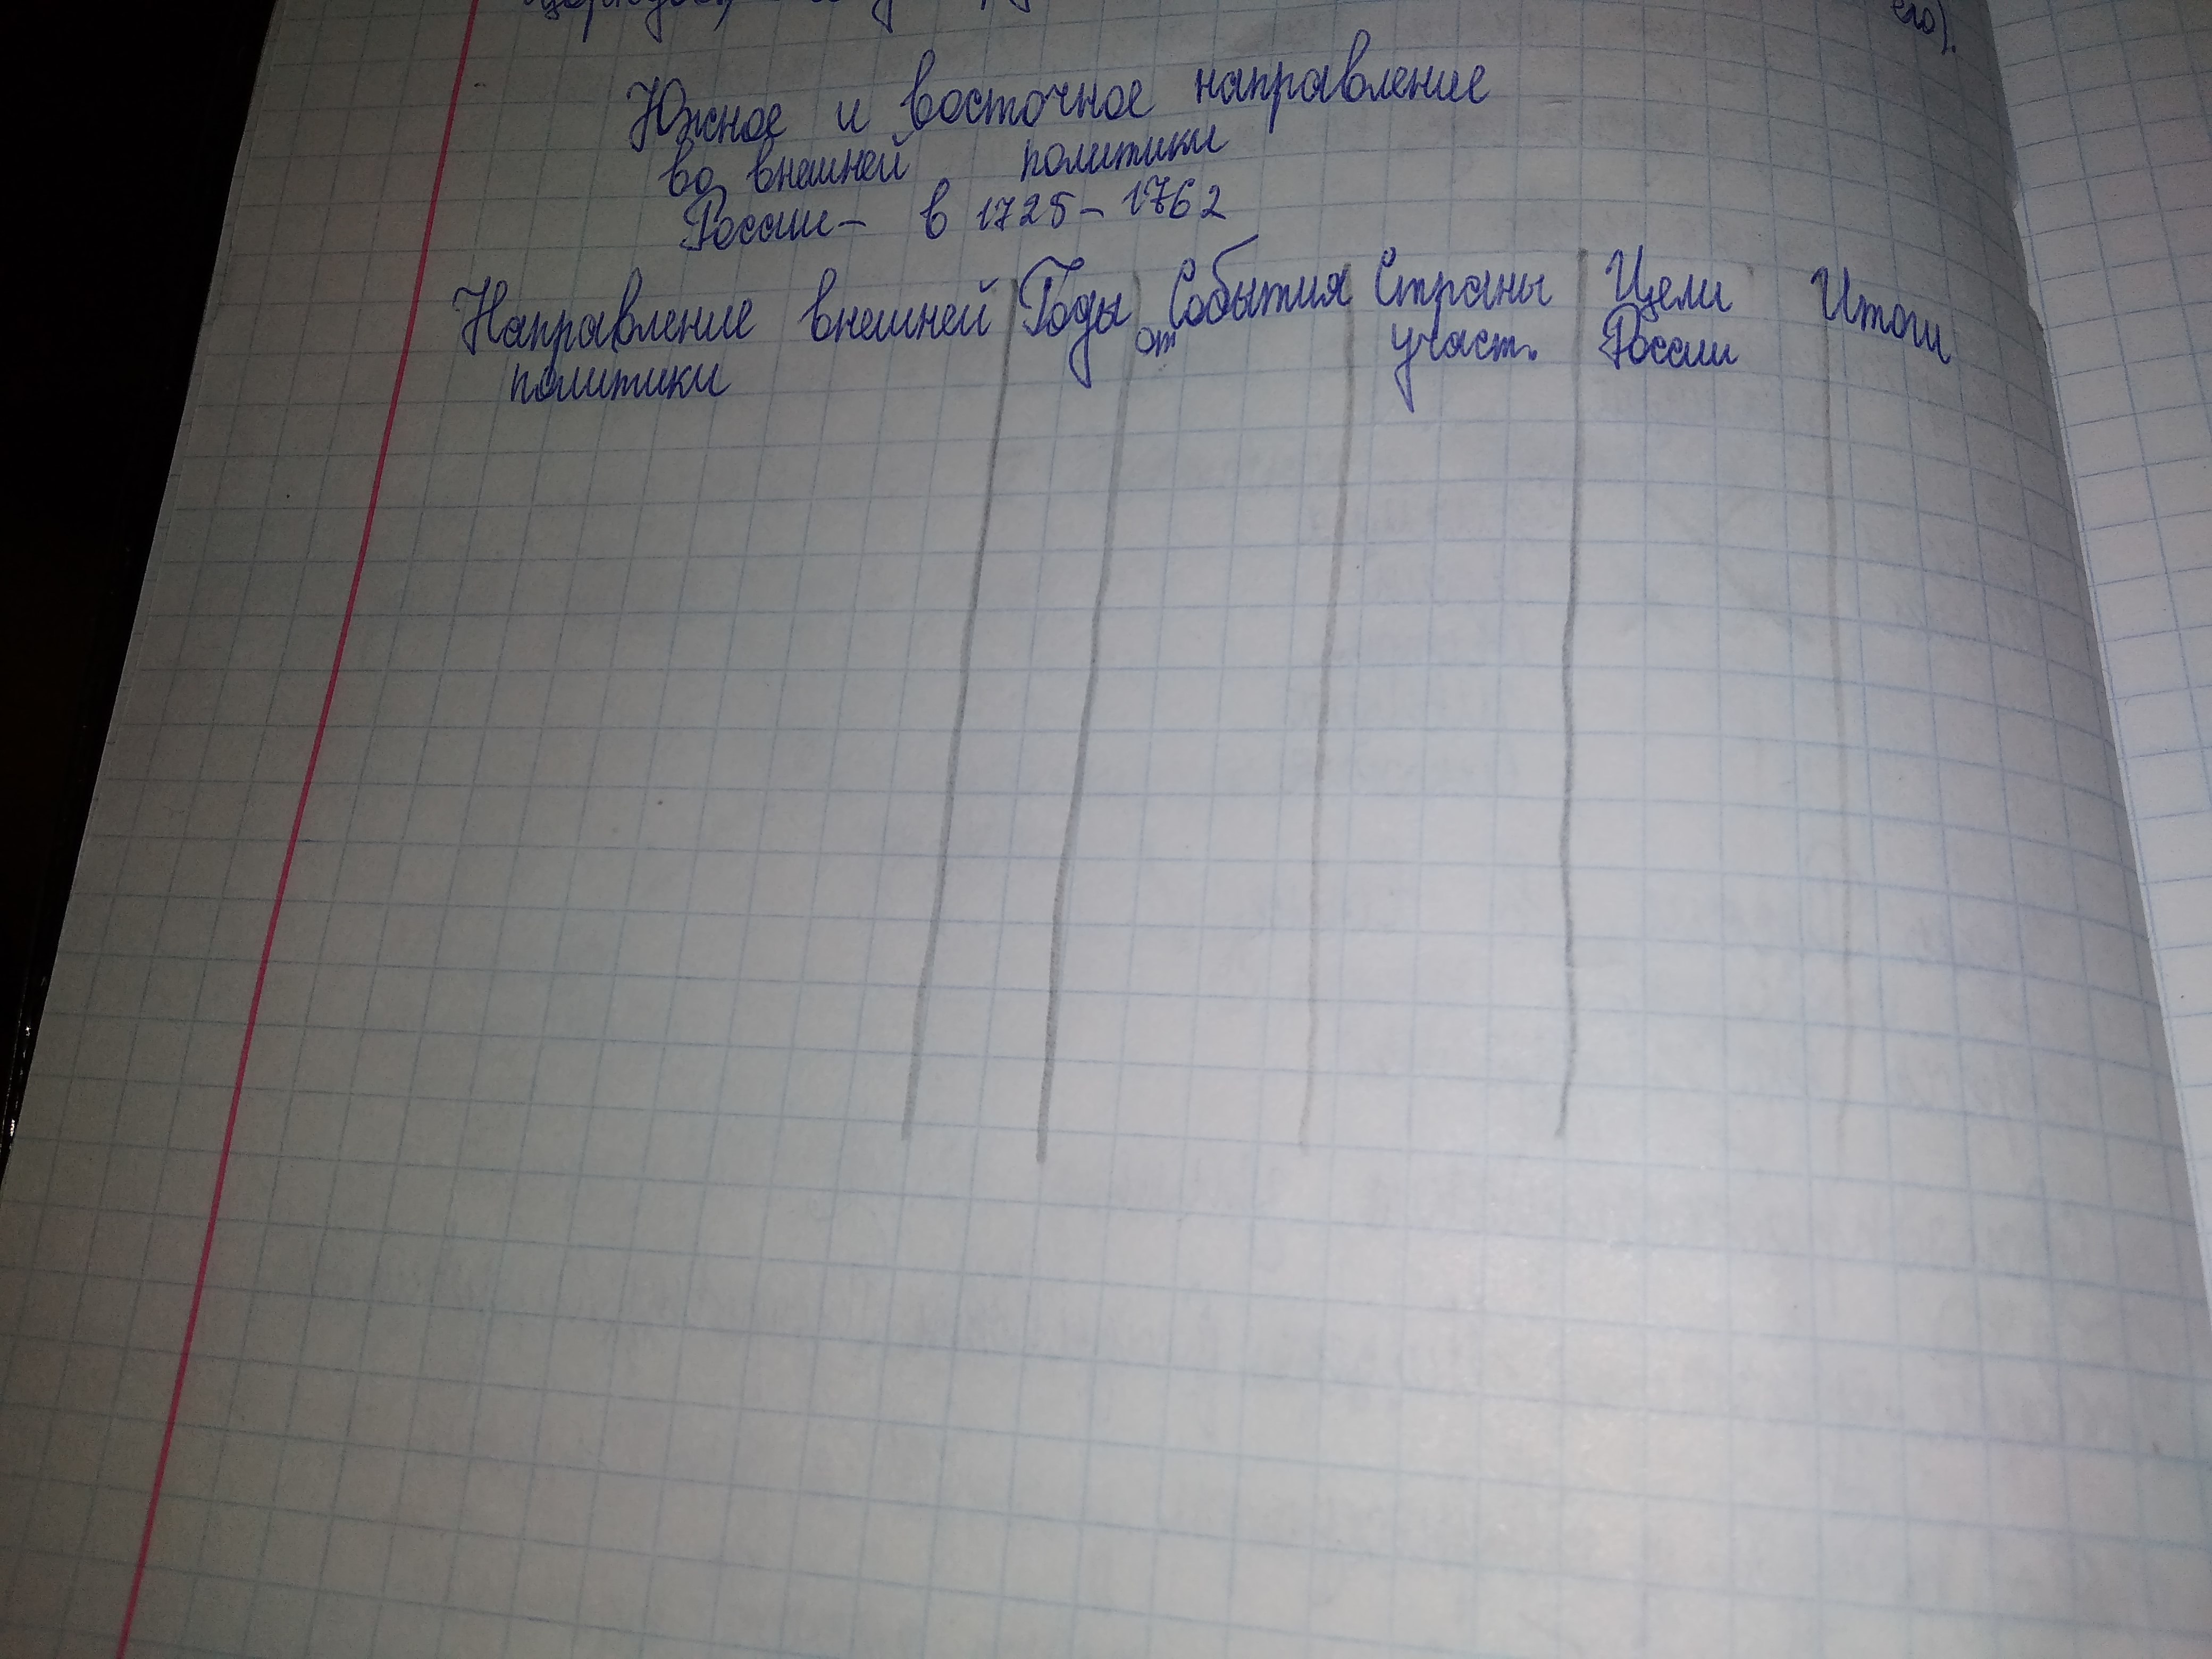 его).
Южное и восточное направление
во внешней политики
России- в 1725-1762
Направление внешней Годы События Страны Цели Итоги
политики от участ. России